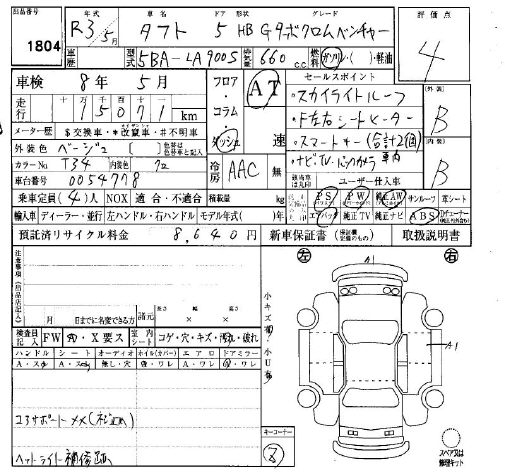 出品番号 1804
年式 R3/5月 車名 タフト ドア 形状 5 HB グレード Gターボクロムベンチャー
車歴 型式 5BA-LA900S 排気量 660 c.c. 燃料 ガソリン・( )・軽油
評価点 4
車検 8年 5月
フロア・コラム・ダッシュ AT 速
走行 十万 万 千 百 十 一 15071 km
メーター歴 $交換車・*改竄車・#不明車
外装色 ベージュ 色替は色替車と記入
カラーNo. T34 内装色
車台番号 0054778
冷房 AAC 無
セールスポイント
・スカイライトルーフ
・F左右シートヒーター
・スマートキー(合計2個)
・ナビTV・バックカメラ
外装 B
内装 B
乗車定員(4)人 NOX 適合・不適合 積載量 kg
ユーザー仕入車
PS PW 純正AW サンルーフ 革シート
輸入車 ディーラー・並行 左ハンドル・右ハンドル モデル年式( )年
エアバック 純正TV 純正ナビ ABS
預託済リサイクル料金 8,640円 新車保証書 取扱説明書
注意事項(出品店記入)
月 日までに名変できる方
諸元 長さ 幅 高さ
左 右
A1
A1
小キズ 小U
検査員記入 FW X要ス 室内シート コゲ・穴・キズ・汚れ・破れ
ハンドル シート オーディオ ホイル(カバー) エアロ ドアミラー
A・スレ 無し・穴 ワレ A・ワレ ワレ
コアサポートメメ
ヘッドライト補修跡
キーコーナー
スペア又は修理キット